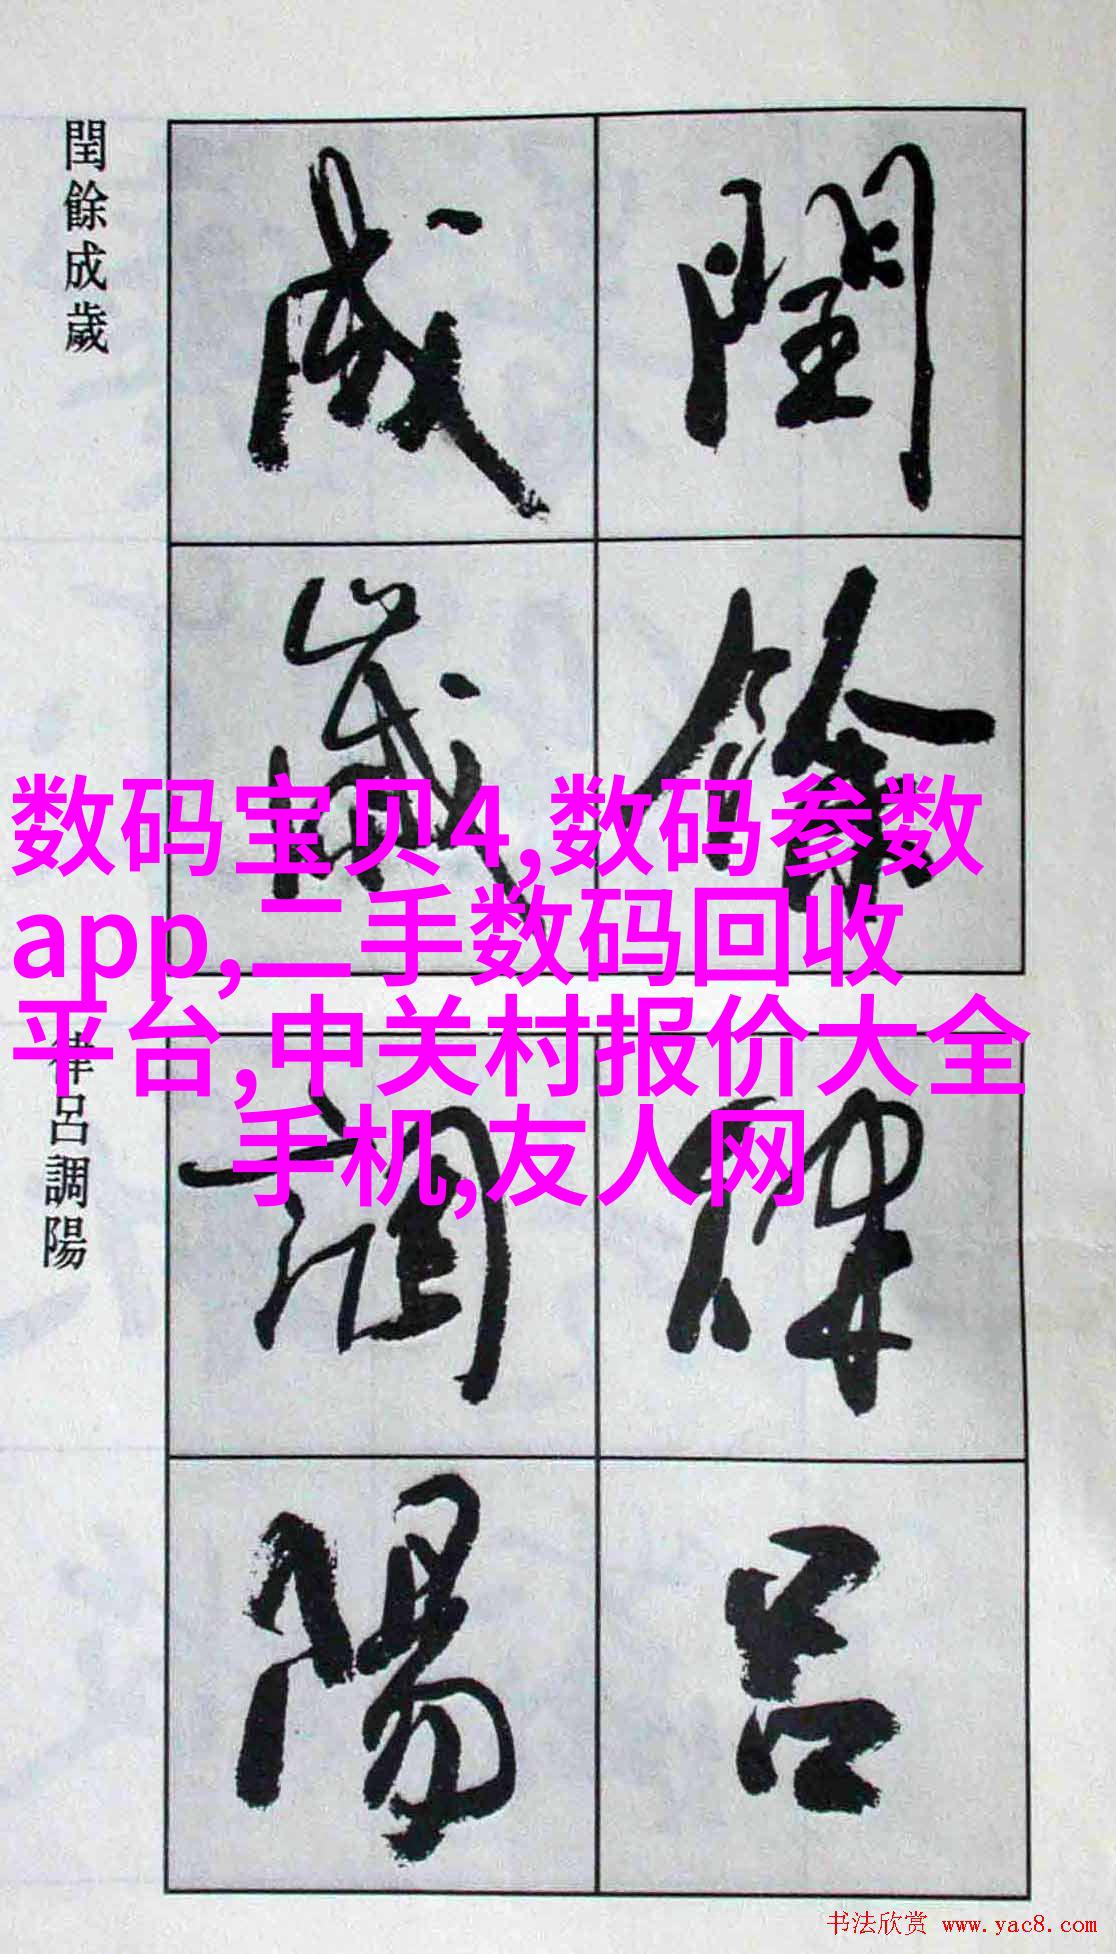 閏餘成歲
閏餘
成歲
数码宝贝4,数码参数
app,二手数码回收
平台,中关村报价大全
手机,友人网
律呂調陽
律呂
調陽
书法欣赏 www.yac8.com